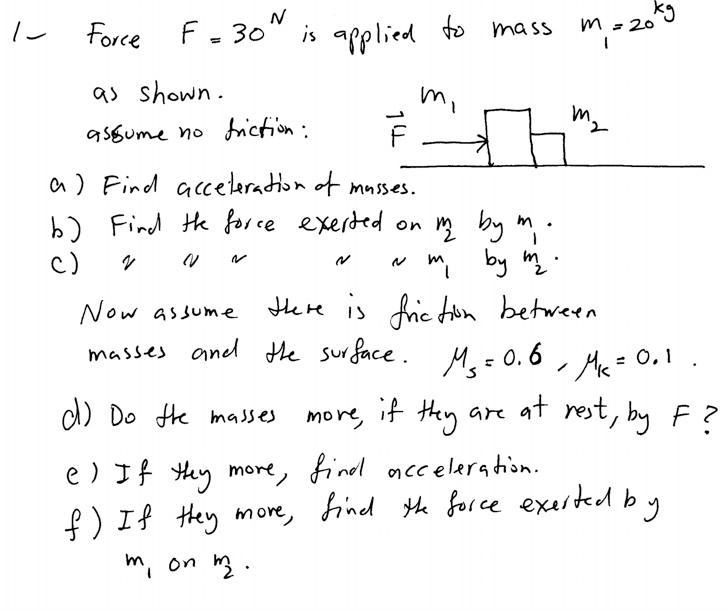 1- Force F = 30 N is applied to mass m₁ = 20 kg
as shown.
m₁
m₂
assume no friction:
F
a) Find acceleration of masses.
b) Find the force exerted on m₂ by m₁.
c) " " " " " m₁ by m₂.
Now assume there is friction between
masses and the surface. μs = 0.6, μk = 0.1.
d) Do the masses move, if they are at rest, by F?
e) If they move, find acceleration.
f) If they move, find the force exerted by
m₁ on m₂.